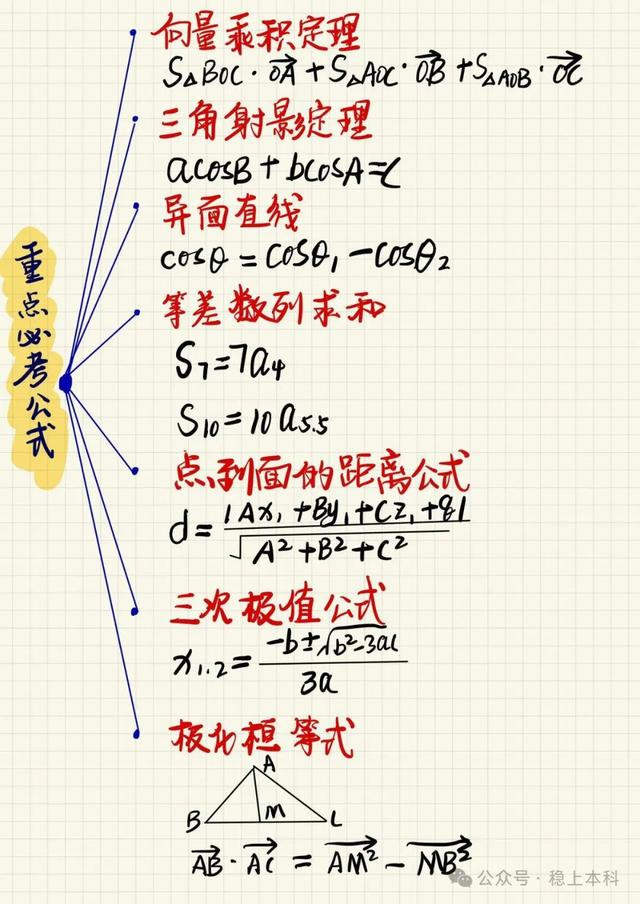 重点必考公式
向量乘积定理
S△BOC·OA+S△AOC·OB+S△AOB·OC
三角射影定理
acosB+bcosA=C
异面直线
cosθ=cosθ₁-cosθ₂
等差数列求和
S₇=7a₄
S₁₀=10a₅.₅
点到面的距离公式
d=|Ax₁+By₁+Cz₁+8|/√A²+B²+C²
三次极值公式
x₁.₂=-b±√b²-3ac/3a
极化恒等式
A
B M L
AB·AC=AM²-MB²
公众号·稳上本科